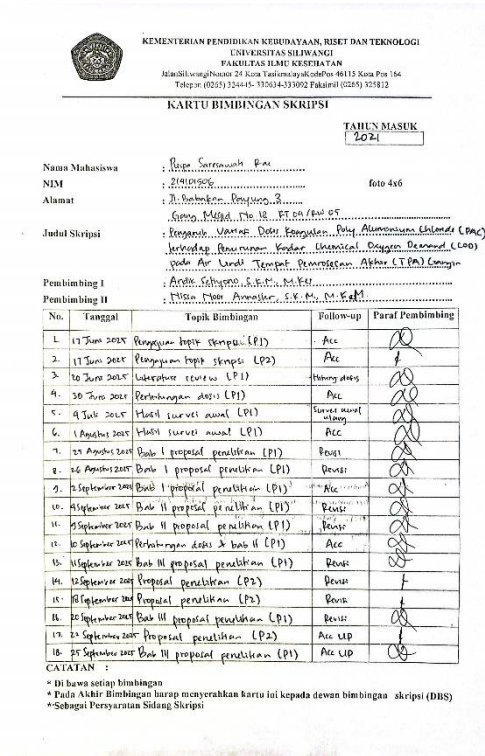 KEMENTERIAN PENDIDIKAN KEBUDAYAAN, RISET DAN TEKNOLOGI
UNIVERSITAS SILIWANGI
FAKULTAS ILMU KESEHATAN
JalanSiliwangiNomor 24 Kota TasikmalayaKodePos 46115 Kota Pos 164
Telepon (0265) 324445- 330634-333092 Faksimil (0265) 325812
KARTU BIMBINGAN SKRIPSI
TAHUN MASUK
2021
Nama Mahasiswa : Puspa
NIM :
foto 4x6
Alamat : Jl. Babakan Payung 3
Gang Mesjid No 12 RT 09/RW 05
Judul Skripsi : Pengaruh Variasi Dosis Koagulan Poly Aluminium Chloride (PAC)
terhadap Penurunan Kadar Chemical Oxygen Demand (COD)
pada Air Lindi Tempat Pemrosesan Akhir (TPA)
Pembimbing I : Andik Setiyono, S.K.M., M.Kes
Pembimbing II : Nissa Noor Annashr, S.K.M., M.KM
No. Tanggal Topik Bimbingan Follow-up Paraf Pembimbing
1. 17 Juni 2025 Pengajuan topik skripsi (P1) Acc
2. 17 Juni 2025 Pengajuan topik skripsi (P2) Acc
3. 20 Juni 2025 Literature review (P1) Hitung dosis
4. 30 Juni 2025 Perhitungan dosis (P1) Acc
5. 9 Juli 2025 Hasil survei awal (P1) Survei awal ulang
6. 1 Agustus 2025 Hasil survei awal (P1) Acc
7. 25 Agustus 2025 Bab I proposal penelitian (P1) Revisi
8. 26 Agustus 2025 Bab I proposal penelitian (P1) Revisi
9. 2 September 2025 Bab I proposal penelitian (P1) Acc
10. 4 September 2025 Bab II proposal penelitian (P1) Revisi
11. 9 September 2025 Bab II proposal penelitian (P1) Revisi
12. 10 September 2025 Perhitungan dosis & bab II (P1) Acc
13. 11 September 2025 Bab III proposal penelitian (P1) Revisi
14. 12 September 2025 Proposal penelitian (P2) Revisi
15. 18 September 2025 Proposal penelitian (P2) Revisi
16. 20 September 2025 Bab III proposal penelitian (P1) Revisi
17. 22 September 2025 Proposal penelitian (P2) Acc UP
18. 25 September 2025 Bab III proposal penelitian (P1) Acc UP
CATATAN :
* Di bawa setiap bimbingan
* Pada Akhir Bimbingan harap menyerahkan kartu ini kepada dewan bimbingan skripsi (DBS)
* Sebagai Persyaratan Sidang Skripsi